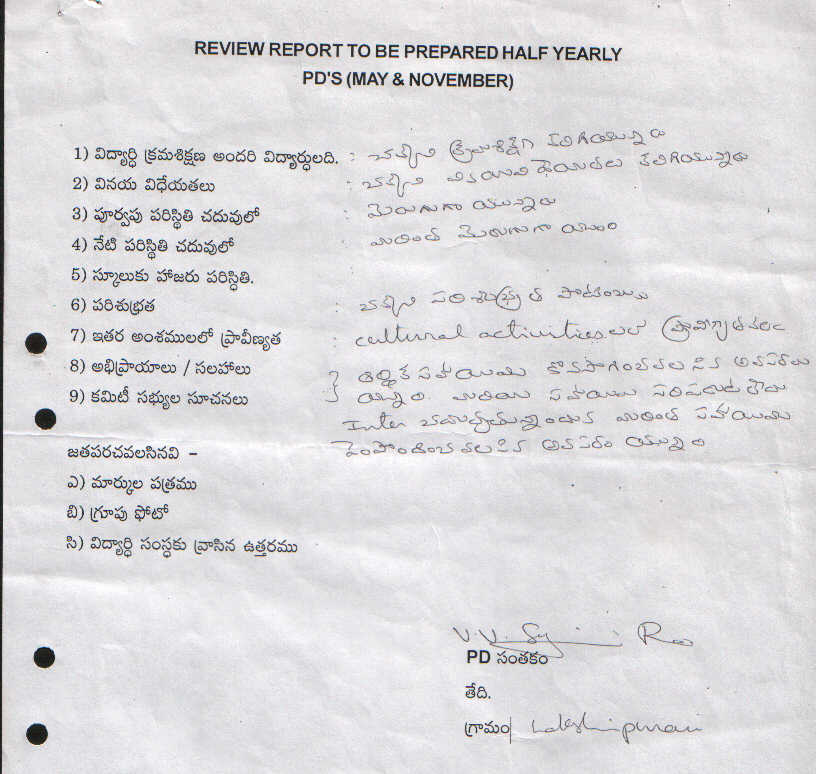 REVIEW REPORT TO BE PREPARED HALF YEARLY
PD'S (MAY & NOVEMBER)
1) విద్యార్ధి క్రమశిక్షణ అందరి విద్యార్ధులది. : చక్కని క్రమశిక్షణ కలిగియున్నారు
2) వినయ విధేయతలు : చక్కని వినయ విధేయతలు కలిగియున్నారు
3) పూర్వపు పరిస్థితి చదువులో : మెరుగుగా యున్నారు
4) నేటి పరిస్థితి చదువులో : మరింత మెరుగుగా
5) స్కూలుకు హాజరు పరిస్ధితి.
6) పరిశుభ్రత : చక్కని పరిశుభ్రత
7) ఇతర అంశములలో ప్రావీణ్యత : cultural activities లలో
8) అభిప్రాయాలు / సలహాలు ఆర్ధిక సహాయము కొనసాగించవలసిన అవసరము
9) కమిటీ సభ్యుల సూచనలు యున్నది. మరియు సహాయము
Inter చదువుతున్నందున మరింత సహాయము
పెంపొందించవలసిన అవసరం యున్నది
జతపరచవలసినవి –
ఎ) మార్కుల పత్రము
బి) గ్రూపు ఫోటో
సి) విద్యార్ధి సంస్ధకు వ్రాసిన ఉత్తరము
V.V. Rao
PD సంతకం
తేది.
గ్రామం